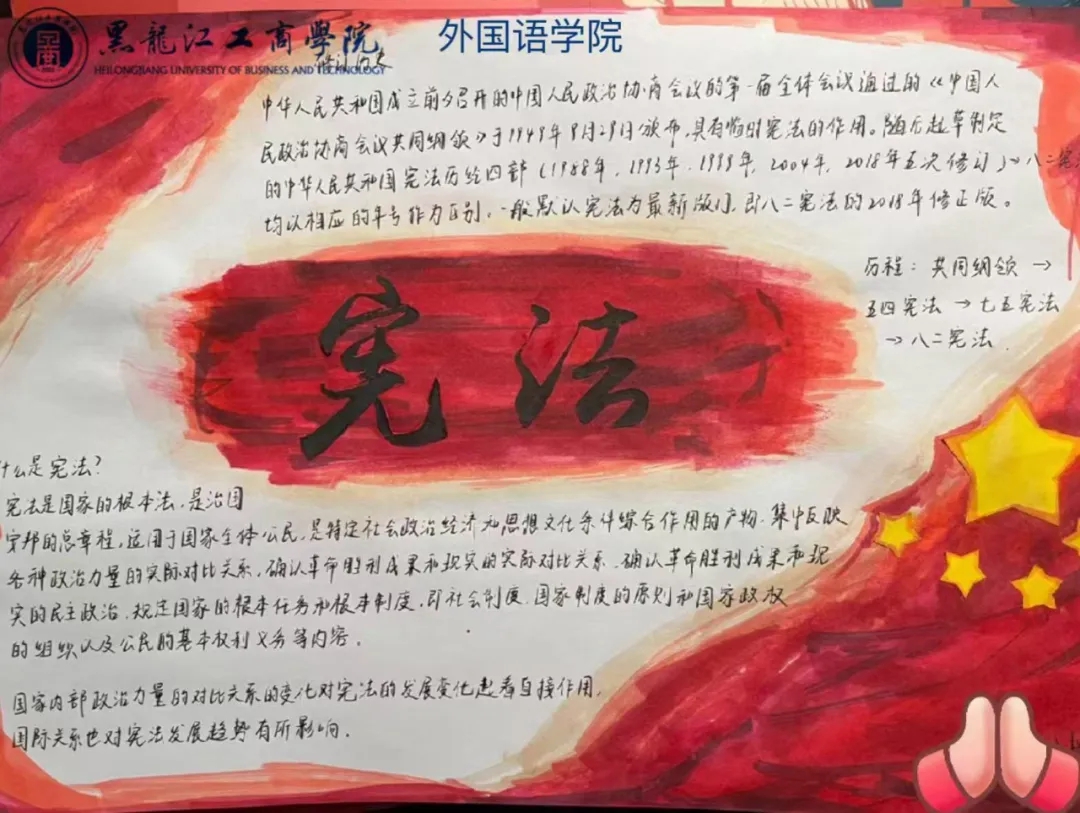 黑龍江工商學院
HEILONGJIANG UNIVERSITY OF BUSINESS AND TECHNOLOGY
外国语学院
修订历史
中华人民共和国成立前夕召开的中国人民政治协商会议的第一届全体会议通过的《中国人
民政治协商会议共同纲领》于1949年9月29日颁布,具有临时宪法的作用。随后起草制定
的中华人民共和国宪法历经四部(1988年,1993年,1999年,2004年,2018年五次修订)→八二宪
均以相应的年号作为区别,一般默认宪法为最新版门,即八二宪法的2018年修正版。
历程:共同纲领→
五四宪法→七五宪法
→八二宪法
宪法
什么是宪法?
宪法是国家的根本法,是治国
安邦的总章程,适用于国家全体公民,是特定社会政治经济和思想文化条件综合作用的产物,集中反映
各种政治力量的实际对比关系,确认革命胜利成果和现实的实际对比关系,确认革命胜利成果和现
实的民主政治,规定国家的根本任务和根本制度,即社会制度、国家制度的原则和国家政权
的组织以及公民的基本权利义务等内容。
国家内部政治力量的对比关系的变化对宪法的发展变化起着直接作用,
国际关系也对宪法发展趋势有所影响。